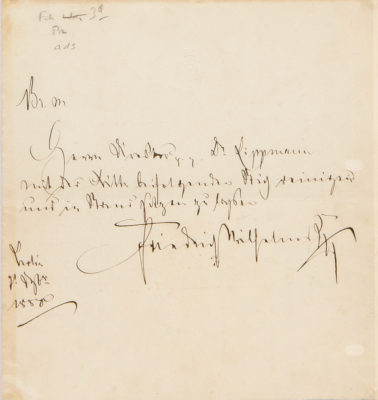 Br. m.
Herrn Direktor p. p. Dr. Lippmann
mit der Bitte beifolgenden Stich reinigen
und in Stand setzen zu lassen
Friedrich Wilhelm
Berlin
1888